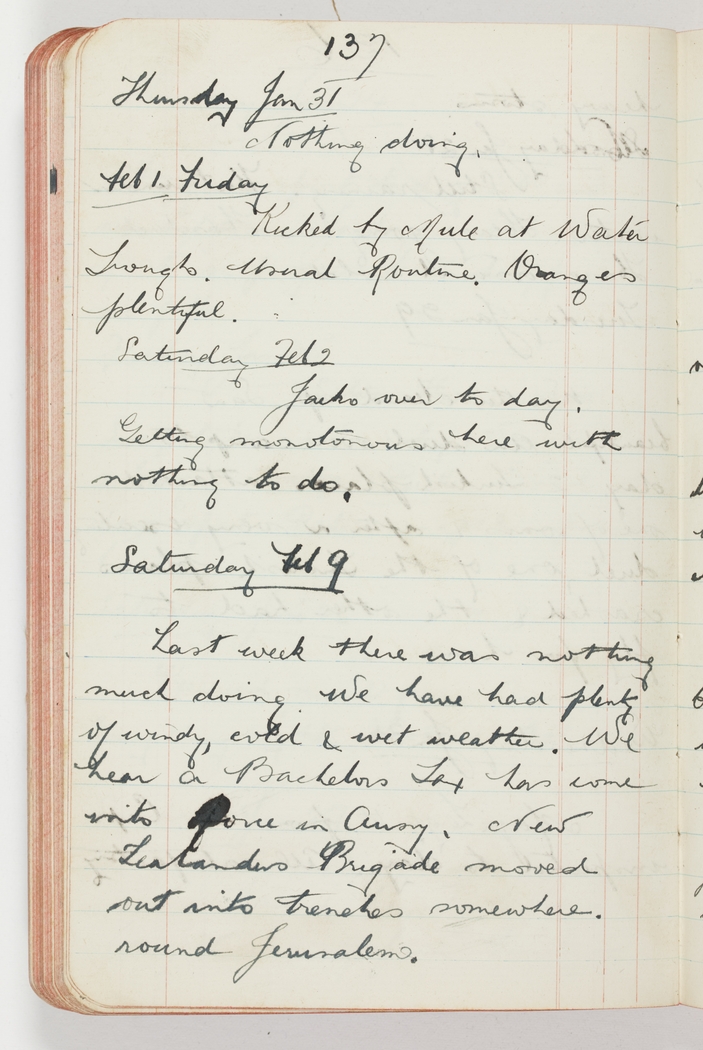 137
Thursday Jan 31
Nothing doing.
Feb 1 Friday
Kicked by Mule at Water
Troughs. Usual Routine. Oranges
plentiful.
Saturday Feb 2
Jacko over to day.
Getting monotonous here with
nothing to do.
Saturday Feb 9
Last week there was nothing
much doing. We have had plenty
of windy, cold & wet weather. We
hear a Bachelors Tax has come
into force in Aussy. New
Zealanders Brigade moved
out into trenches somewhere.
round Jerusalem.